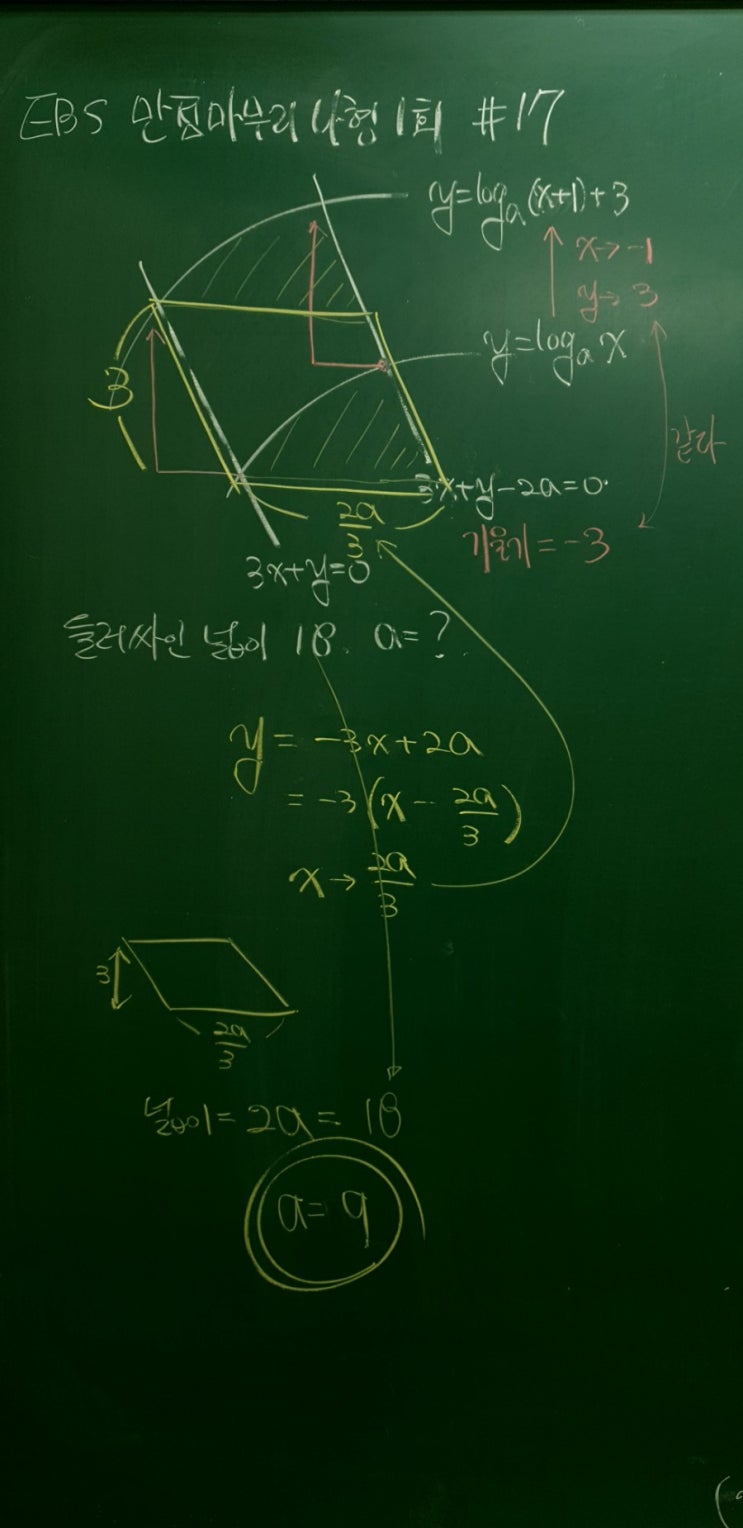 EBS 만점마무리 나형 1회 #17
y=logₐ(x+1)+3
x→-1
y→3
y=logₐx
3
같다
3x+y-2a=0
2a/3
기울기=-3
3x+y=0
둘러싸인 넓이 18. a=?
y = -3x+2a
= -3(x - 2a/3)
x → 2a/3
3
2a/3
넓이= 2a = 18
a= 9